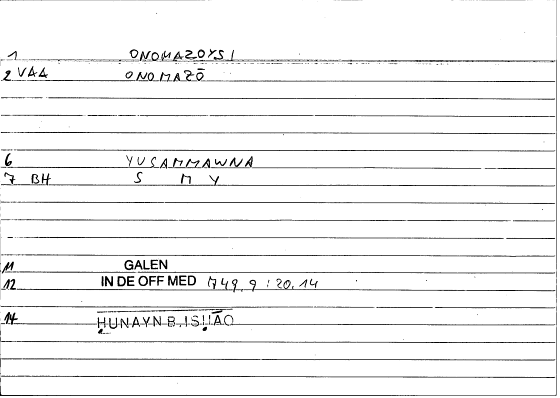 1 ONOMAZOYSI
2 VAA ONOMAZŌ
6 YUSAMMAWNA
7 BH S M Y
11 GALEN
12 IN DE OFF MED 749, 9 : 20, 14
14 ḤUNAYN B. ISḤĀQ